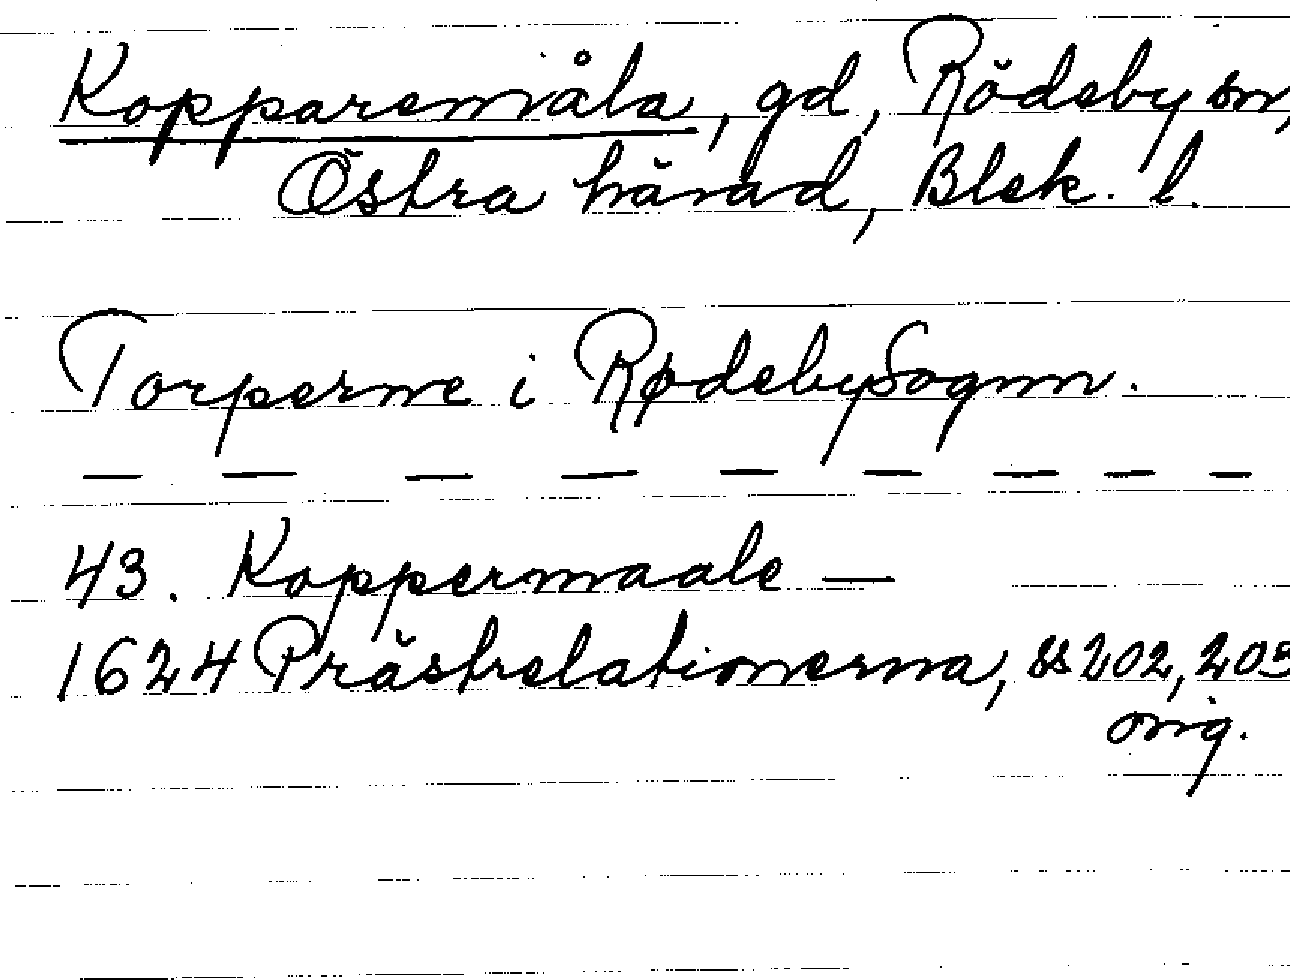 Kopparemåla, gd, Rödeby sn,
Östra härad, Blek. l.
Torperne i RødebySognn.
— — — — — — — — —
43. Koppermaale —
1624 Prästrelationerna, ss 202, 205
orig.